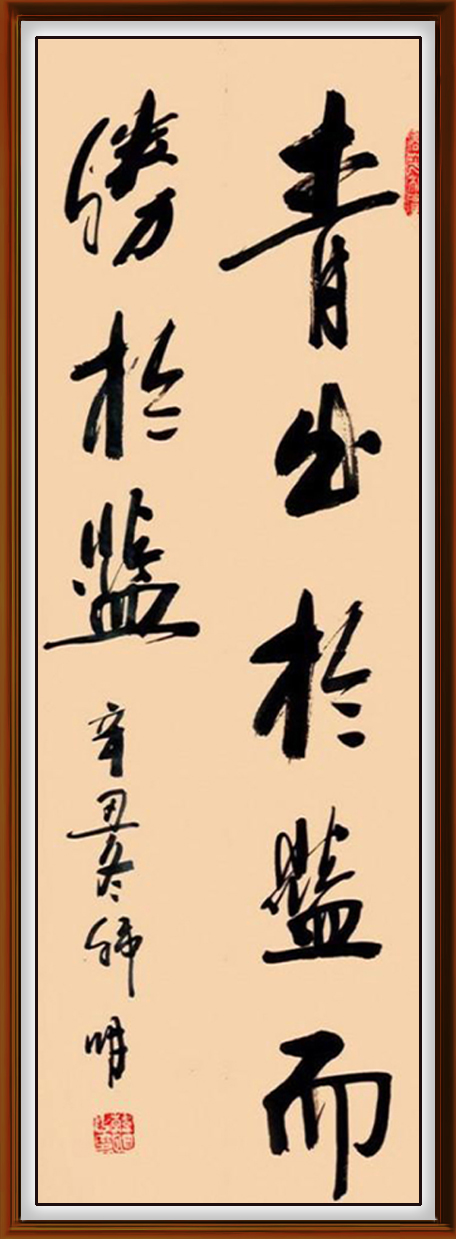 青出於藍而
勝於藍
辛丑冬 明